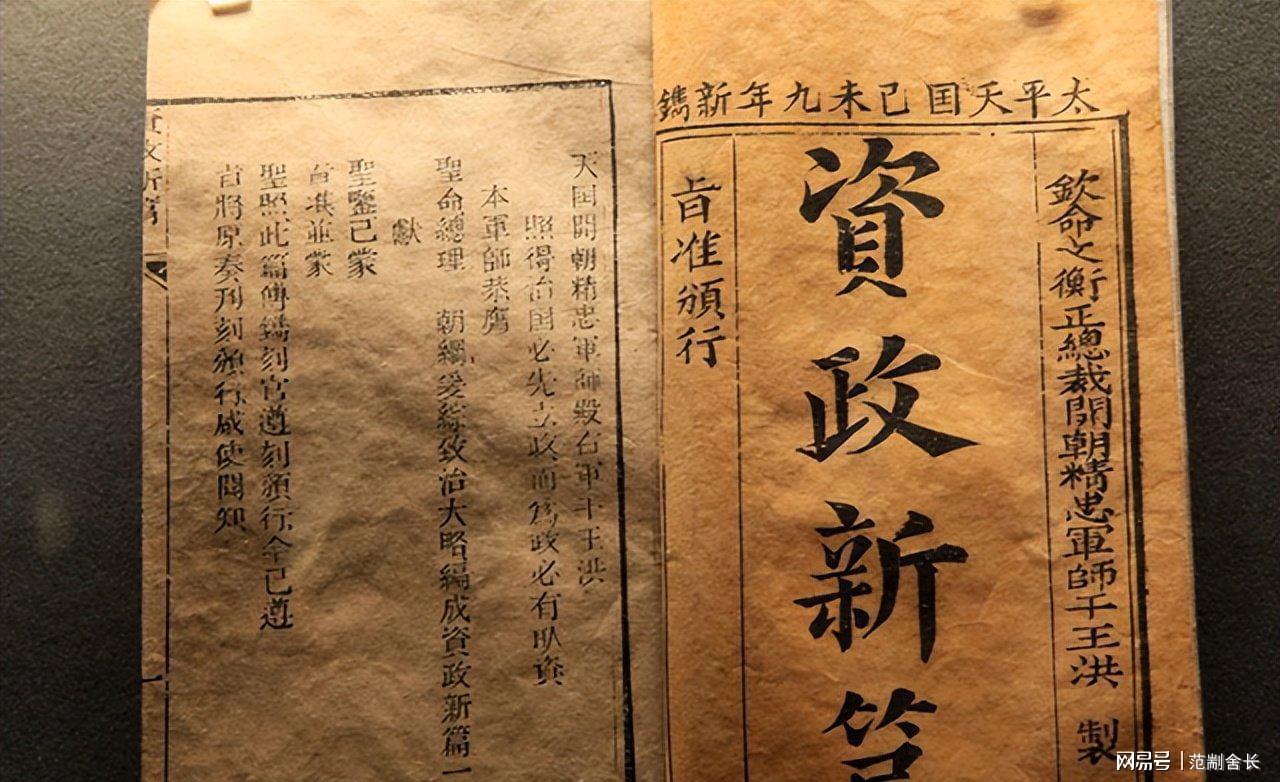 太平天囯己未九年新鐫
欽命文衡正總裁開朝精忠軍師干王洪 製
資政新
旨准頒行
天囯開朝精忠軍師殿右軍干王洪
照得治囯必先立政而為政必有取資
本軍師恭膺
聖命總理 朝綱爰綜致治大略編成資政新篇一
獻
聖鑒已蒙
旨准並蒙
聖照此篇傳鐫刻官遵刻頒行今已遵
旨將原奏刊刻頒行咸使聞知
一
网易号 | 范剬舍长